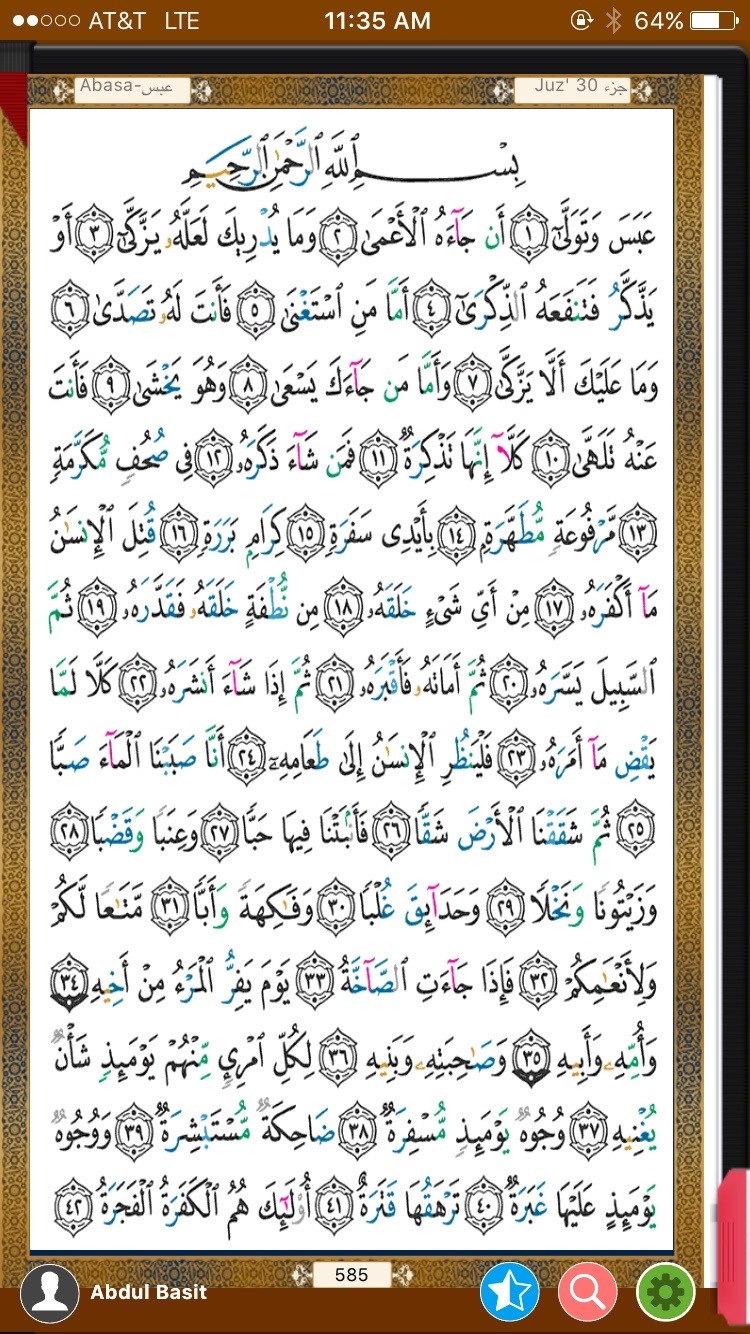 AT&T LTE 11:35 AM 64%
Abasa-عبس جزء Juz' 30
بِسْمِ ٱللَّهِ ٱلرَّحْمَٰنِ ٱلرَّحِيمِ
عَبَسَ وَتَوَلَّىٰٓ ١ أَن جَآءَهُ ٱلْأَعْمَىٰ ٢ وَمَا يُدْرِيكَ لَعَلَّهُۥ يَزَّكَّىٰٓ ٣ أَوْ
يَذَّكَّرُ فَتَنفَعَهُ ٱلذِّكْرَىٰٓ ٤ أَمَّا مَنِ ٱسْتَغْنَىٰ ٥ فَأَنتَ لَهُۥ تَصَدَّىٰ ٦
وَمَا عَلَيْكَ أَلَّا يَزَّكَّىٰ ٧ وَأَمَّا مَن جَآءَكَ يَسْعَىٰ ٨ وَهُوَ يَخْشَىٰ ٩ فَأَنتَ
عَنْهُ تَلَهَّىٰ ١٠ كَلَّآ إِنَّهَا تَذْكِرَةٌ ١١ فَمَن شَآءَ ذَكَرَهُۥ ١٢ فِى صُحُفٍ مُّكَرَّمَةٍ
١٣ مَّرْفُوعَةٍ مُّطَهَّرَةٍۭ ١٤ بِأَيْدِى سَفَرَةٍ ١٥ كِرَامٍۭ بَرَرَةٍ ١٦ قُتِلَ ٱلْإِنسَٰنُ
مَآ أَكْفَرَهُۥ ١٧ مِنْ أَىِّ شَىْءٍ خَلَقَهُۥ ١٨ مِن نُّطْفَةٍ خَلَقَهُۥ فَقَدَّرَهُۥ ١٩ ثُمَّ
ٱلسَّبِيلَ يَسَّرَهُۥ ٢٠ ثُمَّ أَمَاتَهُۥ فَأَقْبَرَهُۥ ٢١ ثُمَّ إِذَا شَآءَ أَنشَرَهُۥ ٢٢ كَلَّا لَمَّا
يَقْضِ مَآ أَمَرَهُۥ ٢٣ فَلْيَنظُرِ ٱلْإِنسَٰنُ إِلَىٰ طَعَامِهِۦٓ ٢٤ أَنَّا صَبَبْنَا ٱلْمَآءَ صَبًّا
٢٥ ثُمَّ شَقَقْنَا ٱلْأَرْضَ شَقًّا ٢٦ فَأَنۢبَتْنَا فِيهَا حَبًّا ٢٧ وَعِنَبًا وَقَضْبًا ٢٨
وَزَيْتُونًا وَنَخْلًا ٢٩ وَحَدَآئِقَ غُلْبًا ٣٠ وَفَٰكِهَةً وَأَبًّا ٣١ مَّتَٰعًا لَّكُمْ
وَلِأَنْعَٰمِكُمْ ٣٢ فَإِذَا جَآءَتِ ٱلصَّآخَّةُ ٣٣ يَوْمَ يَفِرُّ ٱلْمَرْءُ مِنْ أَخِيهِ ٣٤
وَأُمِّهِۦ وَأَبِيهِ ٣٥ وَصَٰحِبَتِهِۦ وَبَنِيهِ ٣٦ لِكُلِّ ٱمْرِئٍ مِّنْهُمْ يَوْمَئِذٍ شَأْنٌ
يُغْنِيهِ ٣٧ وُجُوهٌ يَوْمَئِذٍ مُّسْفِرَةٌ ٣٨ ضَاحِكَةٌ مُّسْتَبْشِرَةٌ ٣٩ وَوُجُوهٌ
يَوْمَئِذٍ عَلَيْهَا غَبَرَةٌ ٤٠ تَرْهَقُهَا قَتَرَةٌ ٤١ أُو۟لَٰٓئِكَ هُمُ ٱلْكَفَرَةُ ٱلْفَجَرَةُ ٤٢
585
Abdul Basit